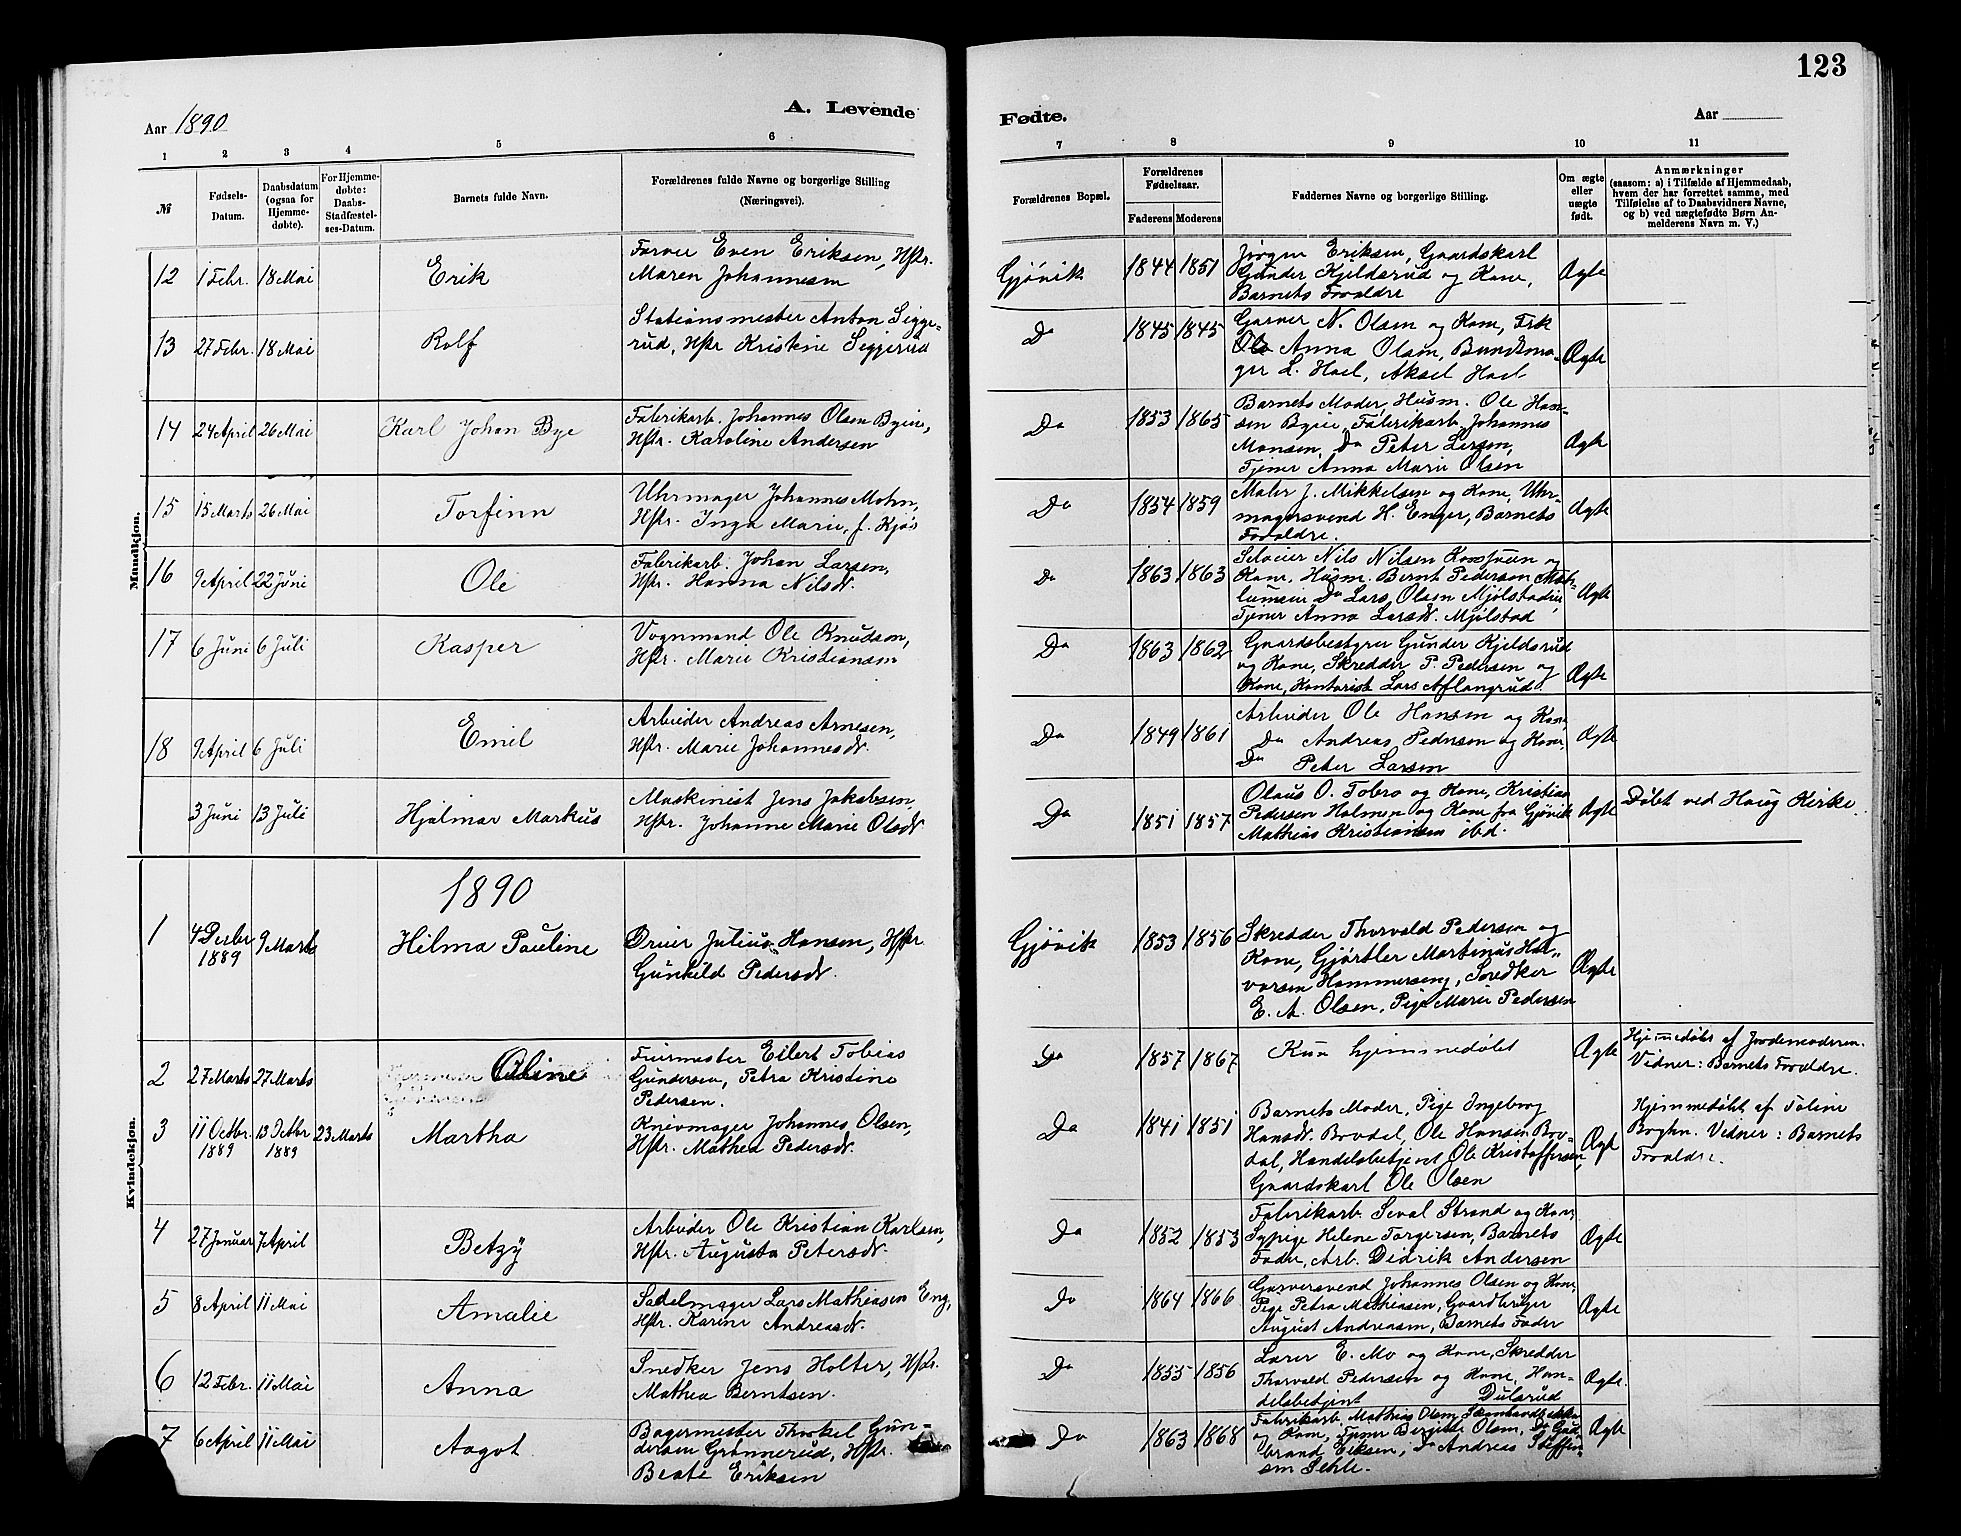 123
A. Levende
Fødte.
Aar 1890
Aar
1 2 3 4 5 6
7 8 9 10 11
№
Fødsels-Datum.
Daabsdatum (ogsaa for Hjemmedøbte).
For Hjemmedøbte: Daabs-Stadfæstelses-Datum.
Barnets fulde Navn.
Forældrenes fulde Navne og borgerlige Stilling
(Næringsvei).
Forældrenes Bopæl.
Forældrenes Fødselsaar.
Faderens Moderens
Faddernes Navne og borgerlige Stilling.
Om ægte eller uægte født.
Anmærkninger
(saasom: a) i Tilfælde af Hjemmedaab,
hvem der har forrettet samme, med
Tilføielse af to Daabsvidners Navne,
og b) ved uægtefødte Børn Anmelderens Navn m. V.)
Mandkjøn.
12 1 Febr. 18 Mai Erik
Farver Even Eriksen, Hstr.
Maren Johannesen
Gjøvik 1844 1851
Jørgen Eriksen, Gaardskarl
Gunder Kjeldsrud og Kone,
Barnets Forældre
Ægte
13 27 Febr. 18 Mai Rolf
Stationsmester Anton Segge-
rud, Hstr Kristine Seggerud
Do 1845 1845
Garver N. Olsen og Kone, Frk
Anna Olsen, Bundtma-
ger L. Hoel, Aksel Hoel
Ægte
14 24 April 26 Mai Karl Johan Bye
Fabrikarb. Johannes Olsen Byeie,
Hstr. Karoline Andersen
Do 1853 1865
Barnets Moder, Husm. Ole Han-
sen Byeie, Fabrikarb. Johannes
Monsen, Do Peter Larsen,
Tjener Anna Marie Olsen
Ægte
15 15 Marts 26 Mai Torfinn
Uhrmager Johannes Mohn,
Hstr. Inga Marie, f. Kjøs
Do 1854 1859
Maler J. Mikkelsen og Kone, Uhr-
magersvend H. Enger, Barnets
Forældre.
Ægte
16 9 April 22 Juni Ole
Fabrikarb. Johan Larsen,
Hstr. Hanna Nilsdr.
Do 1863 1863
Selveier Nils Nilsen
Kone, Husm. Bernt Pedersen
Do Lars Olsen Mjølstadeie,
Tjener Anna Larsdr. Mjølstad
Ægte
17 6 Juni 6 Juli Kasper
Vognmand Ole Knudsen,
Hstr. Marie Kristiansen
Do 1863 1862
Gaardsbestyrer Gunder Kjeldsrud
og Kone, Skredder P. Pedersen og
Kone, Kontorist Lars Aflangrud.
Ægte
18 9 April 6 Juli Emil
Arbeider Andreas Arnesen,
Hstr. Marie Johannesdr.
Do 1849 1861
Arbeider Ole Hansen og Kone,
Do Andreas Pedersen og Kone,
Do Peter Larsen
Ægte
3 Juni 13 Juli Hjalmar Markus
Maskinist Jens Jakobsen,
Hstr. Johanne Marie Olsdr
Do 1851 1857
Olaus O. Tobro og Kone, Kristian
Pedersen Holmen og Kone fra Gjøvik
Mathias Kristiansen ibd.
Ægte
Døbt ved Haug Kirke.
Kvindekjøn.
1890
1 4 Decbr 1889 9 Marts Hilma Pauline
Dreier Julius Hansen, Hstr
Gunhild Pedersdr.
Gjøvik 1853 1856
Skredder Thorvald Pedersen og
Kone, Gjørtler Martinus Hal-
vorsen Hammerseng, Snedker
E. A. Olsen, Pige Marie Pedersen
Ægte
2 27 Marts 27 Marts Oline
Furmester Eilert Tobias
Gundersen, Petra Kristine
Pedersen.
Do 1857 1867
Kun hjemmedøbt
Ægte
Hjemmedøbt af Jordemoderen.
Vidner: Barnets Forældre.
3 11 Octbr. 1889 13 Octbr 1889 23 Marts Martha
Knivmager Johannes Olsen,
Hstr. Mathea Pedersdr.
Do 1841 1851
Barnets Moder, Pige Ingeborg
Hansdr. Bovdal, Ole Hansen Bov-
dal, Handelsbetjent Ole Kristoffersen,
Gaardskarl Ole Olsen
Ægte
Hjemmedøbt af Toline
Vidner: Barnets
Forældre.
4 27 Januar 7 April Betzy
Arbeider Ole Kristian Karlsen,
Hstr. Augusta Petersdr.
Do 1852 1853
Fabrikarb. Seval Strand og Kone,
Sypige Helene Torgersen, Barnets
Fader, Arb. Didrik Andersen
Ægte
5 8 April 11 Mai Amalie
Sadelmager Lars Mathiasen Eng,
Hstr. Karine Andreasdr.
Do 1864 1866
Garversvend Johannes Olsen og Kone,
Pige Petra Mathiasen, Gaardbruger
August Andreasen, Barnets Fader
Ægte
6 12 Febr. 11 Mai Anna
Snedker Jens Holter, Hstr.
Mathea Berntsen.
Do 1855 1856
Lærer E. Mo og Kone, Skredder
Thorvald Pedersen og Kone, Han-
delsbetjent Dulsrud
Ægte.
7 6 April 11 Mai Aagot
Bagermester Thorkel Gun-
dersen Grønnerud, Hstr.
Beate Eriksen
Do 1863 1868
Fabrikarb. Mathias Olsen
og Kone, Tjener Birgitte Olsen, Do Gud-
brand Eriksen, Do Andreas Steffen-
sen Sehle.
Ægte